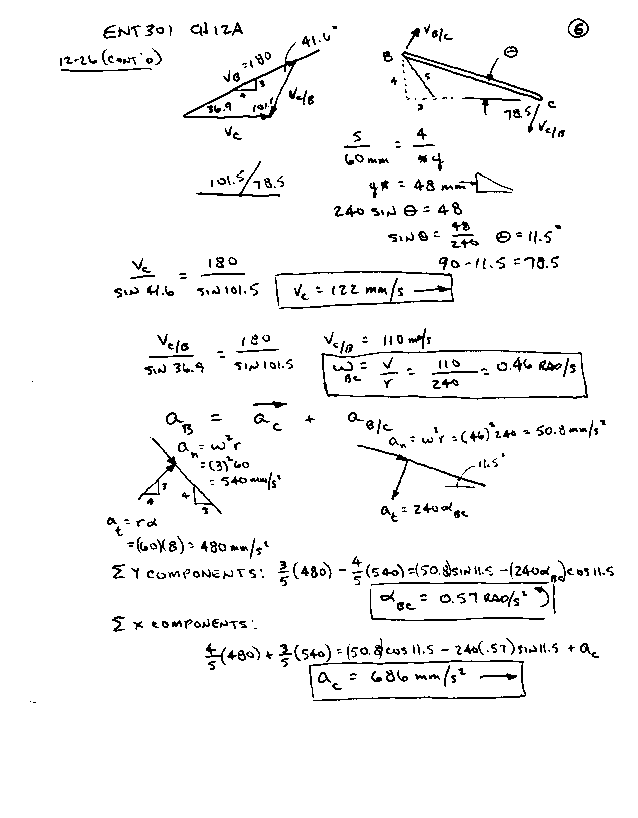 ENT301 CH12A
6
12-26 (CONT'D)
V_B = 180
41.6°
3
4
36.9
101.5
V_C/B
V_C
V_B/C
B
θ
4
5
3
C
78.5
V_C/B
5/60mm = 4/y
y = 48 mm
101.5/78.5
240 SIN θ = 48
SIN θ = 48/240 θ = 11.5°
90 - 11.5 = 78.5
V_C/SIN 41.6 = 180/SIN 101.5 V_C = 122 mm/s →
V_C/B/SIN 36.9 = 180/SIN 101.5 V_C/B = 110 mm/s
ω_BC = V/r = 110/240 = 0.46 RAD/s
a_B = a_C + a_B/C
a_n = ω²r
= (3)²60
= 540 mm/s²
3
4
4
3
a_n = ω²r = (.46)²240 = 50.8 mm/s²
11.5°
a_t = 240α_BC
a_t = rα
= (60)(8) = 480 mm/s²
Σ Y COMPONENTS: 3/5(480) - 4/5(540) = (50.8)SIN 11.5 - (240α_BC)COS 11.5
α_BC = 0.57 RAD/s²
Σ X COMPONENTS:
4/5(480) + 3/5(540) = (50.8)COS 11.5 - 240(.57)SIN 11.5 + a_C
a_C = 686 mm/s² →